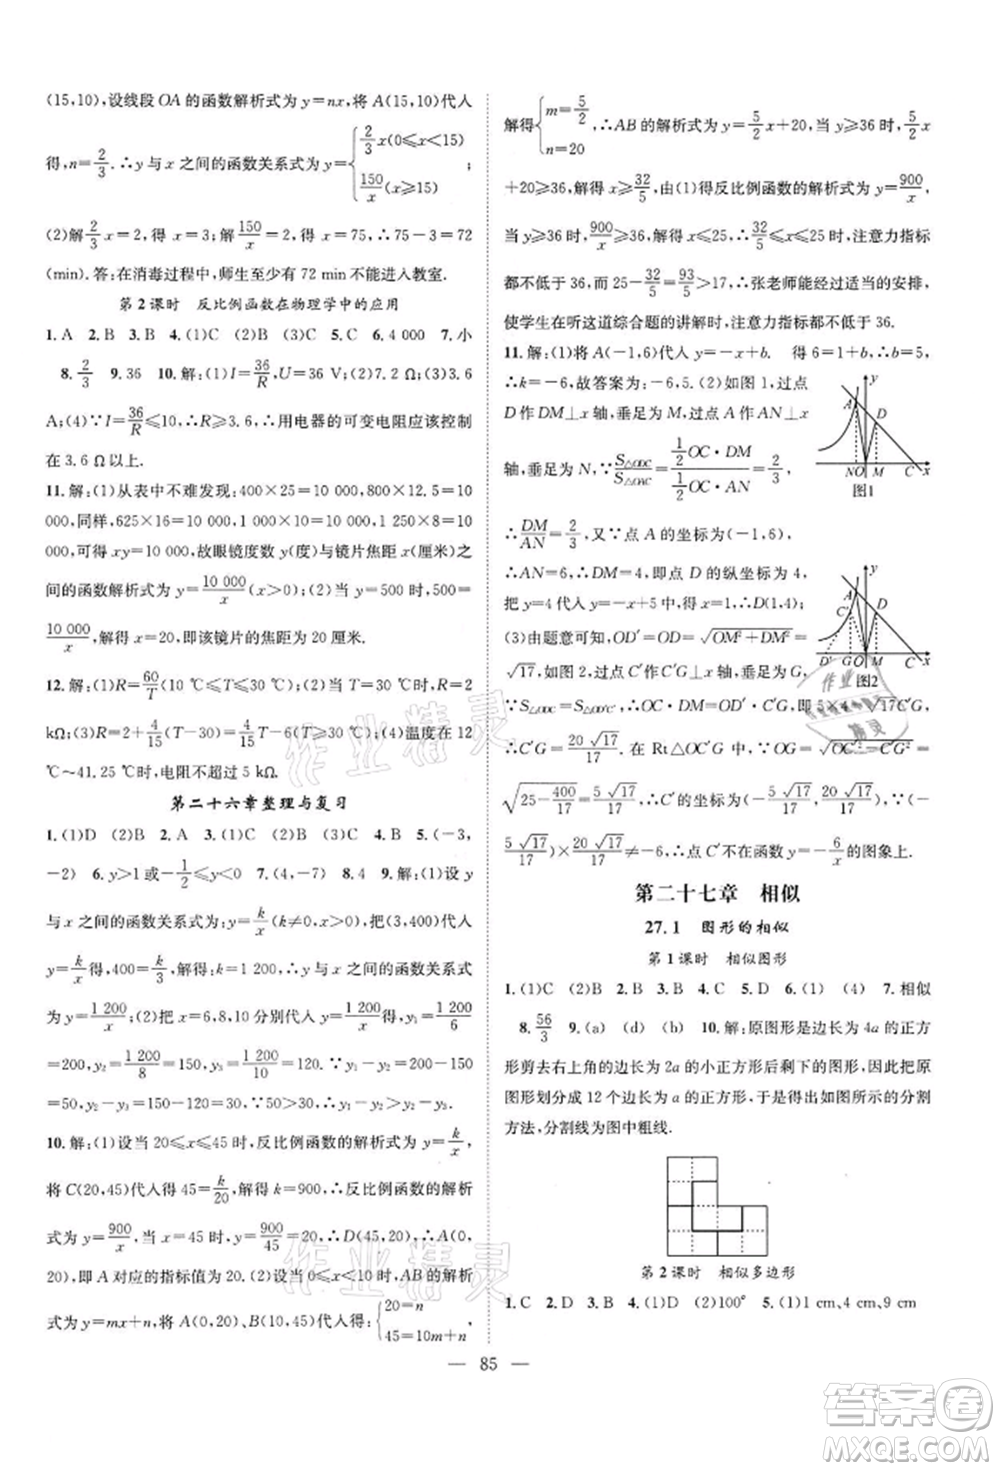 (15,10),设线段 OA 的函数解析式为 y=nx,将 A(15,10)代人
得,n=2/3.∴y 与 x 之间的函数关系式为 y={2/3 x(0≤x<15) 150/x(x≥15);
(2)解2/3 x=2,得 x=3;解150/x=2,得 x=75.75-3=72
(min).答:在消毒过程中,师生至少有 72 min不能进入教室.
第2课时 反比例函数在物理学中的应用
1.A 2.B 3.B 4.(1)C (2)B (3)C 5.C 6.4 000 7.小
8.2/3 9.36 10.解:(1)I=36/R,U=36 V;(2)7.2 Ω;(3)3.6
A;(4)∵I=36/R≤10,∴R≥3.6,∴用电器的可变电阻应该控制
在 3.6 Ω以上.
11.解:(1)从表中不难发现:400×25=10 000,800×12.5=10
000,同样,625×16=10 000,1 000×10=10 000,1 250×8=10
000;即可得 xy=10 000,故眼镜度数y(度)与镜片焦距x(厘米)之
间的函数解析式为 y=10 000/x(x>0);(2)当 y=500 时,500=
10 000/x,解得 x=20,即该镜片的焦距为 20 厘米.
12.解:(1)R=60/T(10℃≤T≤30℃);(2)当 T=30 时,R=2
kΩ;(3)R=2+4/15(T-30)=4/15T-6(T≥30);(4)温度在 12
℃~41.25℃时,电阻不超过 5 kΩ.
第二十六章整理与复习
1.(1)D (2)B 2.A 3.(1)C (2)B (3)C 4.B 5.(-3,
-2) 6.y>1或-1/2≤y<0 7.-6 8.4 9.解:(1)设 y
与 x 之间的函数关系式为 y=k/x(k≠0,x>0),把(3,400)代人
y=k/x得,400=k/3,解得:k=1 200,∴y 与 x 之间的函数关系式
为 y=1 200/x;(2)把 x=6,8,10 分别代人 y=1 200/x得,y₁=1 200/6
=200,y₂=1 200/8=150,y₃=1 200/10=120.∵y₁-y₂=200-150
=50,y₂-y₃=150-120=30,∵50>30,∴y₁-y₂>y₂-y₃.
10.解:(1)设当 20≤x≤45 时,反比例函数的解析式为 y=k/x,
将 C(20,45)代人得 45=k/20,解得 k=900,∴反比例函数的解析
式为 y=900/x,当 x=45 时,y=900/45=20,∴D(45,20),∴A(0,
20),即 A 对应的指标值为 20.(2)设当 0≤x<10 时,AB 的解析
式为 y=mx+n,将 A(0,20)、B(10,45)代人得{20=n 45=10m+n,
解得{m=5/2 n=20,∴AB 的解析式为 y=5/2x+20,当 y≥36 时,5/2x
+20≥36,解得 x≥32/5,由(1)得反比例函数的解析式为 y=900/x,
当 y≥36 时,900/x≥36,解得 x≤25,∴32/5≤x≤25时,注意力指标
都不低于 36,而 25-32/5=93/5>17,∴张老师能经过适当的安排,
使学生在听这道综合题的讲解时,注意力指标都不低于 36.
11.解:(1)将 A(-1,6)代人 y=-x+b. 得 6=1+b,∴b=5
∴k=-6,故答案为:-6,5.(2)如图 1,过点
D 作 DM⊥x 轴,垂足为 M,过点 A 作 AN⊥x
轴,垂足为 N,∵S△ODC/S△OAC=(1/2OC·DM)/(1/2OC·AN)=2/3,
∴DM/AN=2/3,又∵点 A 的坐标为(-1,6),
∴AN=6,∴DM=4,即点 D 的纵坐标为 4,
把 y=4 代人 y=-x+5 得,x=1,∴D(1,4);
(3)由题意可知,OD′=OD=√OM²+DM²=
√17,如图 2,过点 C′作 C′G⊥x 轴,垂足为 G,
∵S△ODC=S△OD′C′,∴OC·DM=OD′·C′G,即 5×4=√17C′G,
∴C′G=20√17/17,在 Rt△OC′G 中,∵OG=√OC′²-C′G²=
√25-400/17=5√17/17,∴C′(-5√17/17,20√17/17),∵(-
5√17/17)×20√17/17≠-6,∴点 C′不在函数 y=-6/x的图象上.
图1
图2
第二十七章 相似
27.1 图形的相似
第1课时 相似图形
1.(1)C (2)B 2.B 3.B 4.C 5.D 6.(1) (4) 7.相似
8.56/3 9.(a) (d) (b) 10.解:原图形是边长为 4a 的正方
形剪去右上角的边长为 2a 的小正方形后剩下的图形,因此把原
图形划分成 12 个边长为 a 的正方形,于是得出如图所示的分割
方法,分割线为图中粗线.
第2课时 相似多边形
1.C 2.D 3.B 4.(1)C (2)100° 5.(1)1 cm,4 cm,9 cm
— 85 —
作业精灵
作业精灵
作业精灵
答案圈
MXQE.COM